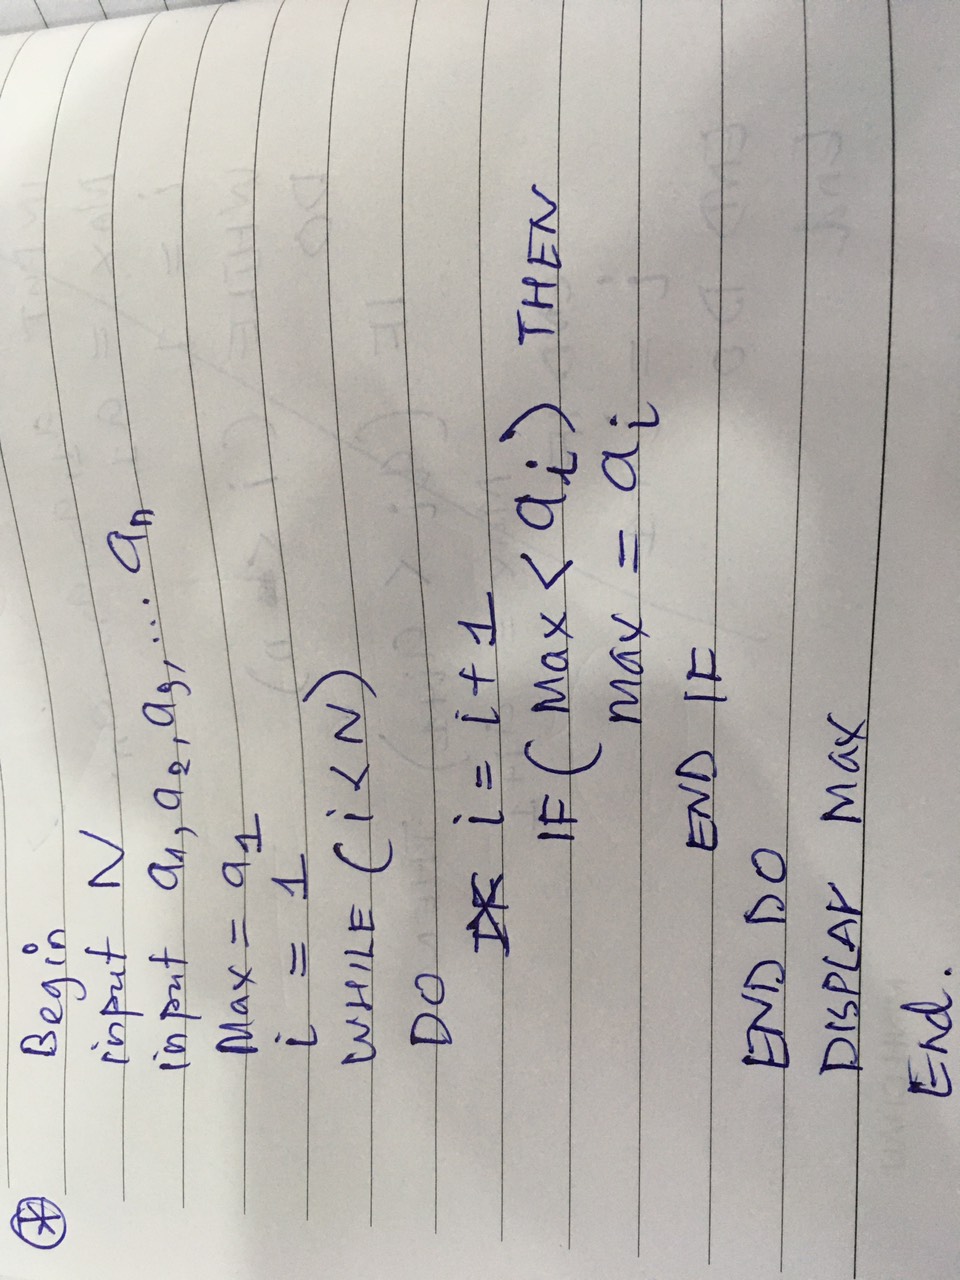 Begin
input N
input a1, a2, a3, ... an
Max = a1
i = 1
WHILE (i<N)
DO
i = i + 1
IF (Max < ai) THEN
Max = ai
END IF
END DO
DISPLAY Max
End.